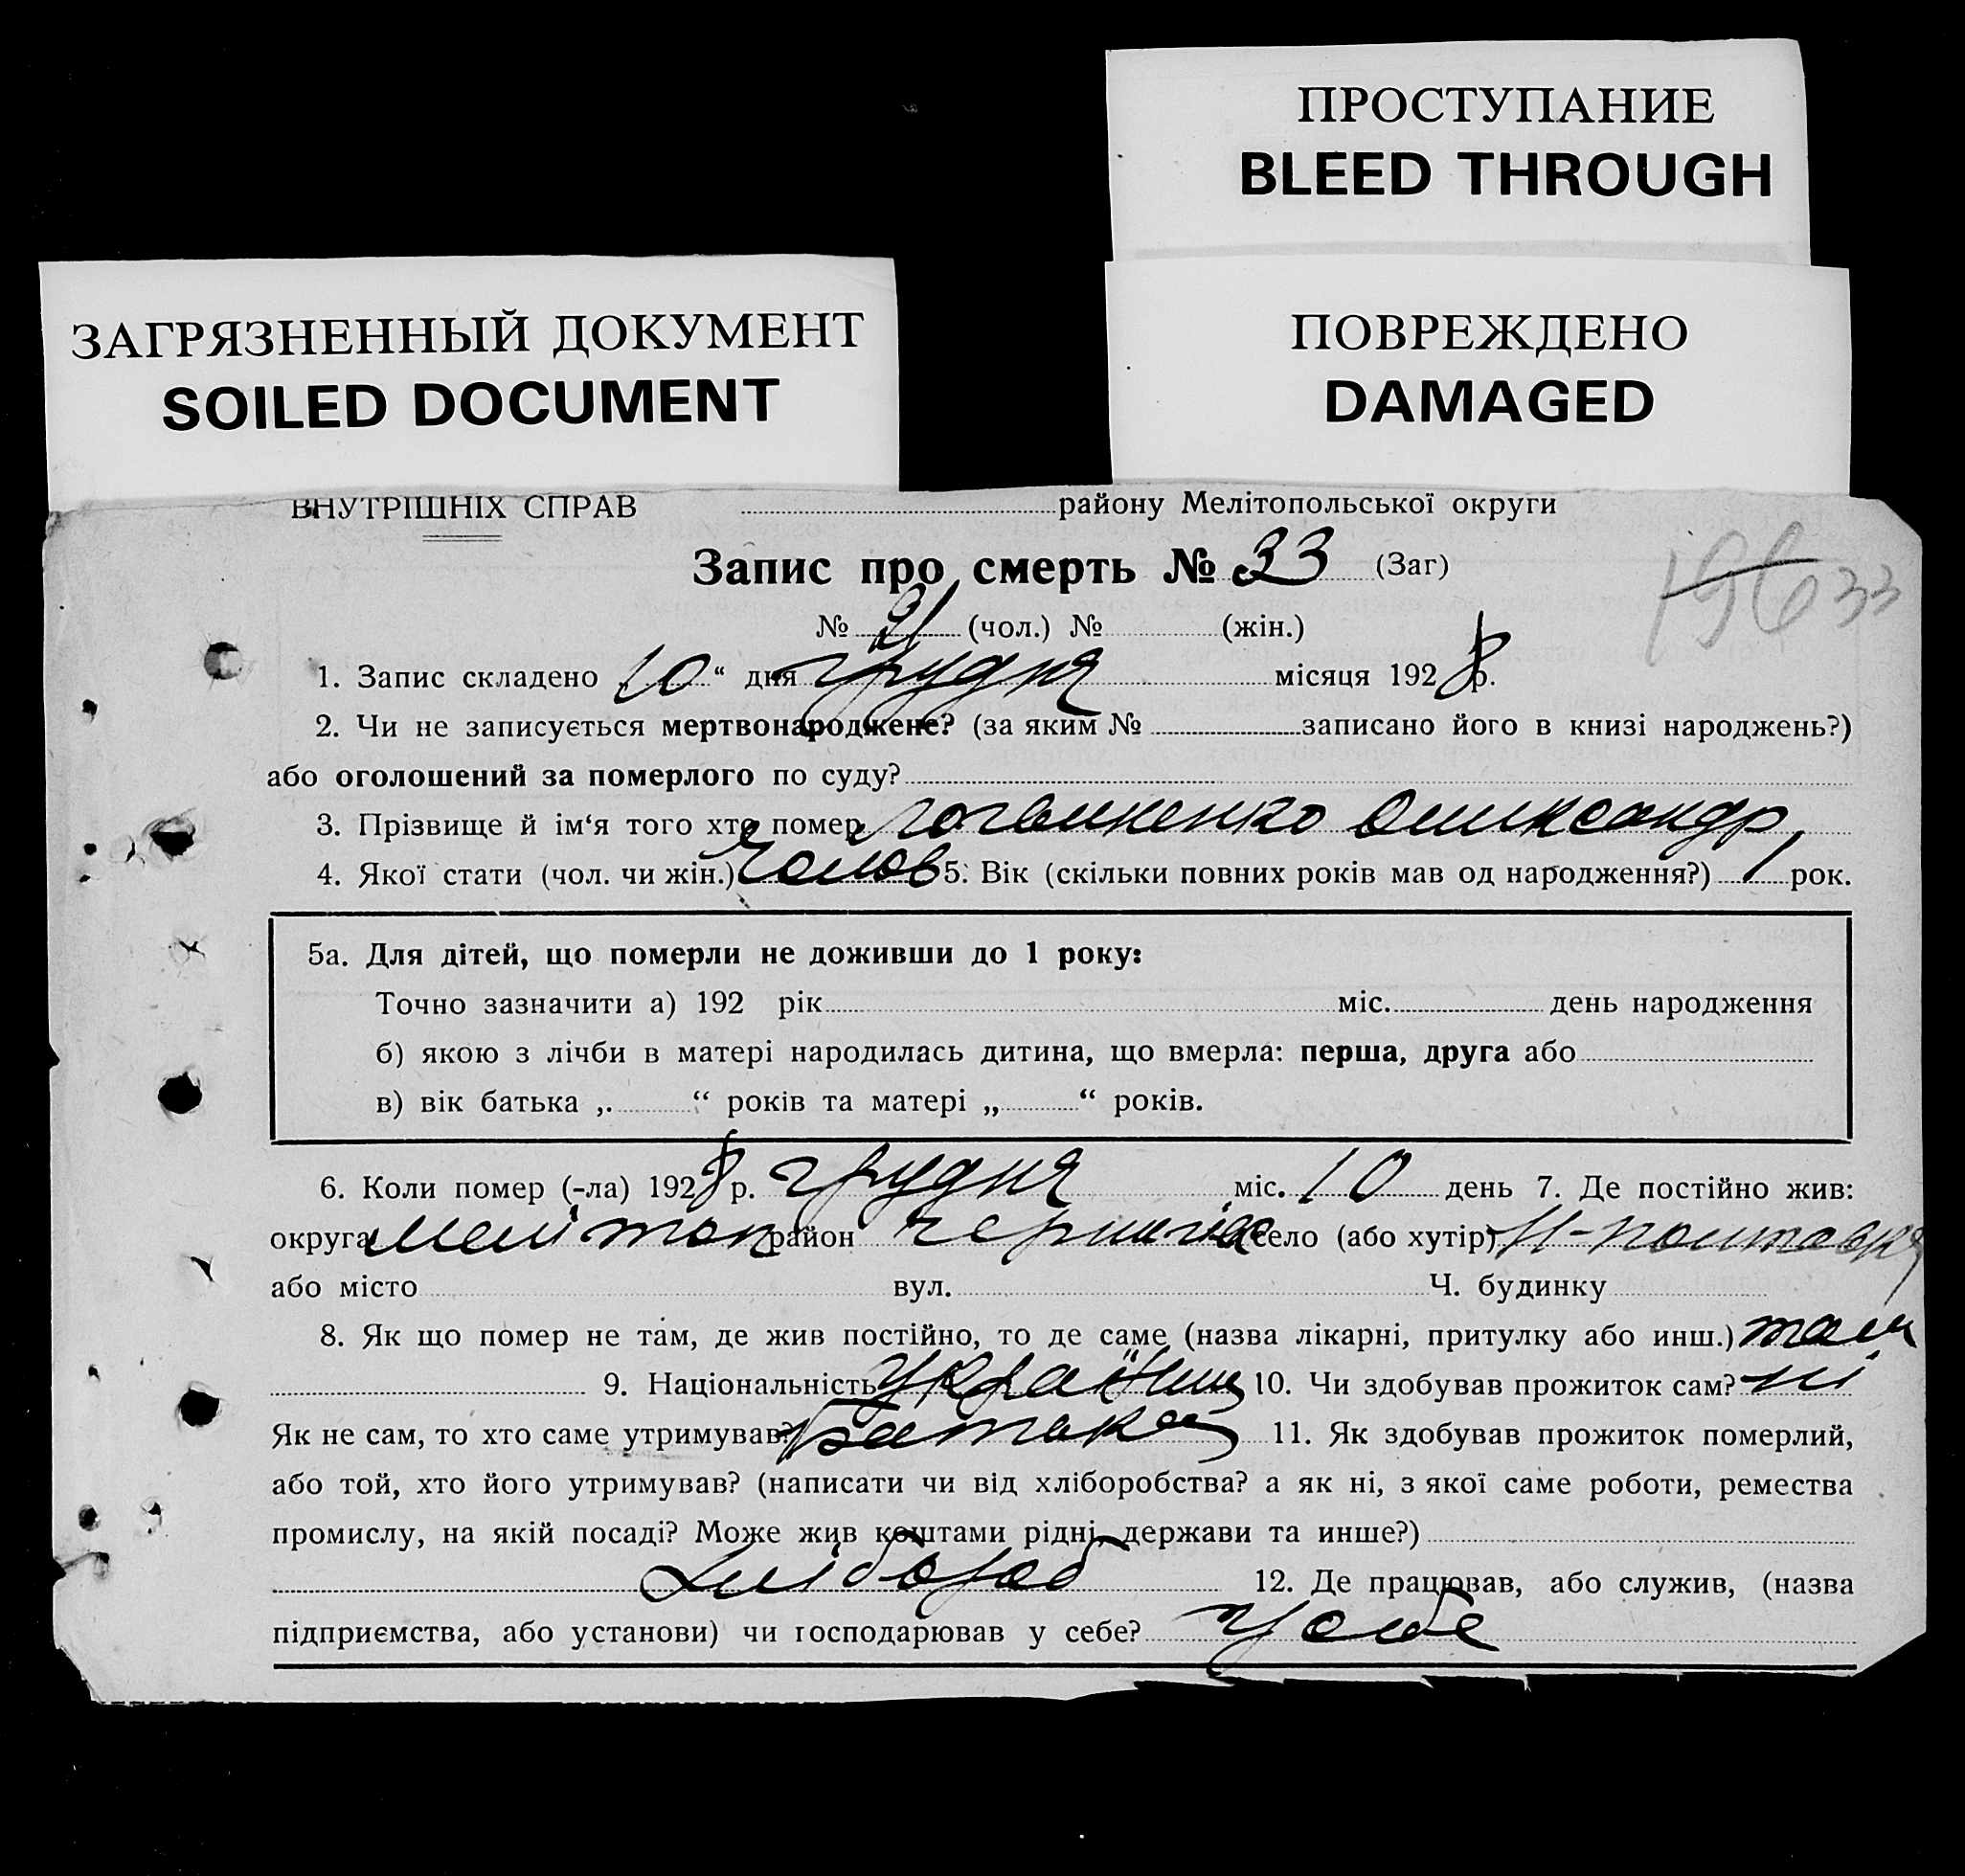 ПРОСТУПАНИЕ
BLEED THROUGH
ЗАГРЯЗНЕННЫЙ ДОКУМЕНТ
SOILED DOCUMENT
ПОВРЕЖДЕНО
DAMAGED
ВНУТРІШНІХ СПРАВ району Мелітопольської округи
Запис про смерть № 33 (Заг)
196 33
№ 21 (чол.) № (жін.)
1. Запис складено „10“ дня грудня місяця 1928 р.
2. Чи не записується мертвонароджене? (за яким № записано його в книзі народжень?)
або оголошений за померлого по суду?
3. Прізвище й ім‘я того хто помер Логвиненко Олександр
4. Якої стати (чол. чи жін.) Чолов 5. Вік (скільки повних років мав од народження?) 1 рок.
5а. Для дітей, що померли не доживши до 1 року:
Точно зазначити а) 192 рік міс. день народження
б) якою з лічби в матері народилась дитина, що вмерла: перша, друга або
в) вік батька „ “ років та матері „ “ років.
6. Коли помер (-ла) 1928 р. грудня міс. 10 день 7. Де постійно жив:
округа Мелітоп район Чернигів село (або хутір) Н-Полтавка
або місто вул. Ч. будинку
8. Як що помер не там, де жив постійно, то де саме (назва лікарні, притулку або инш.) там
9. Національність Українец 10. Чи здобував прожиток сам? ні
Як не сам, то хто саме утримував? Батько 11. Як здобував прожиток померлий,
або той, хто його утримував? (написати чи від хліборобства? а як ні, з якої саме роботи, ремества
промислу, на якій посаді? Може жив коштами рідні, держави та инше?)
Хлібороб 12. Де працював, або служив, (назва
підприємства, або установи) чи господарював у себе? У себе